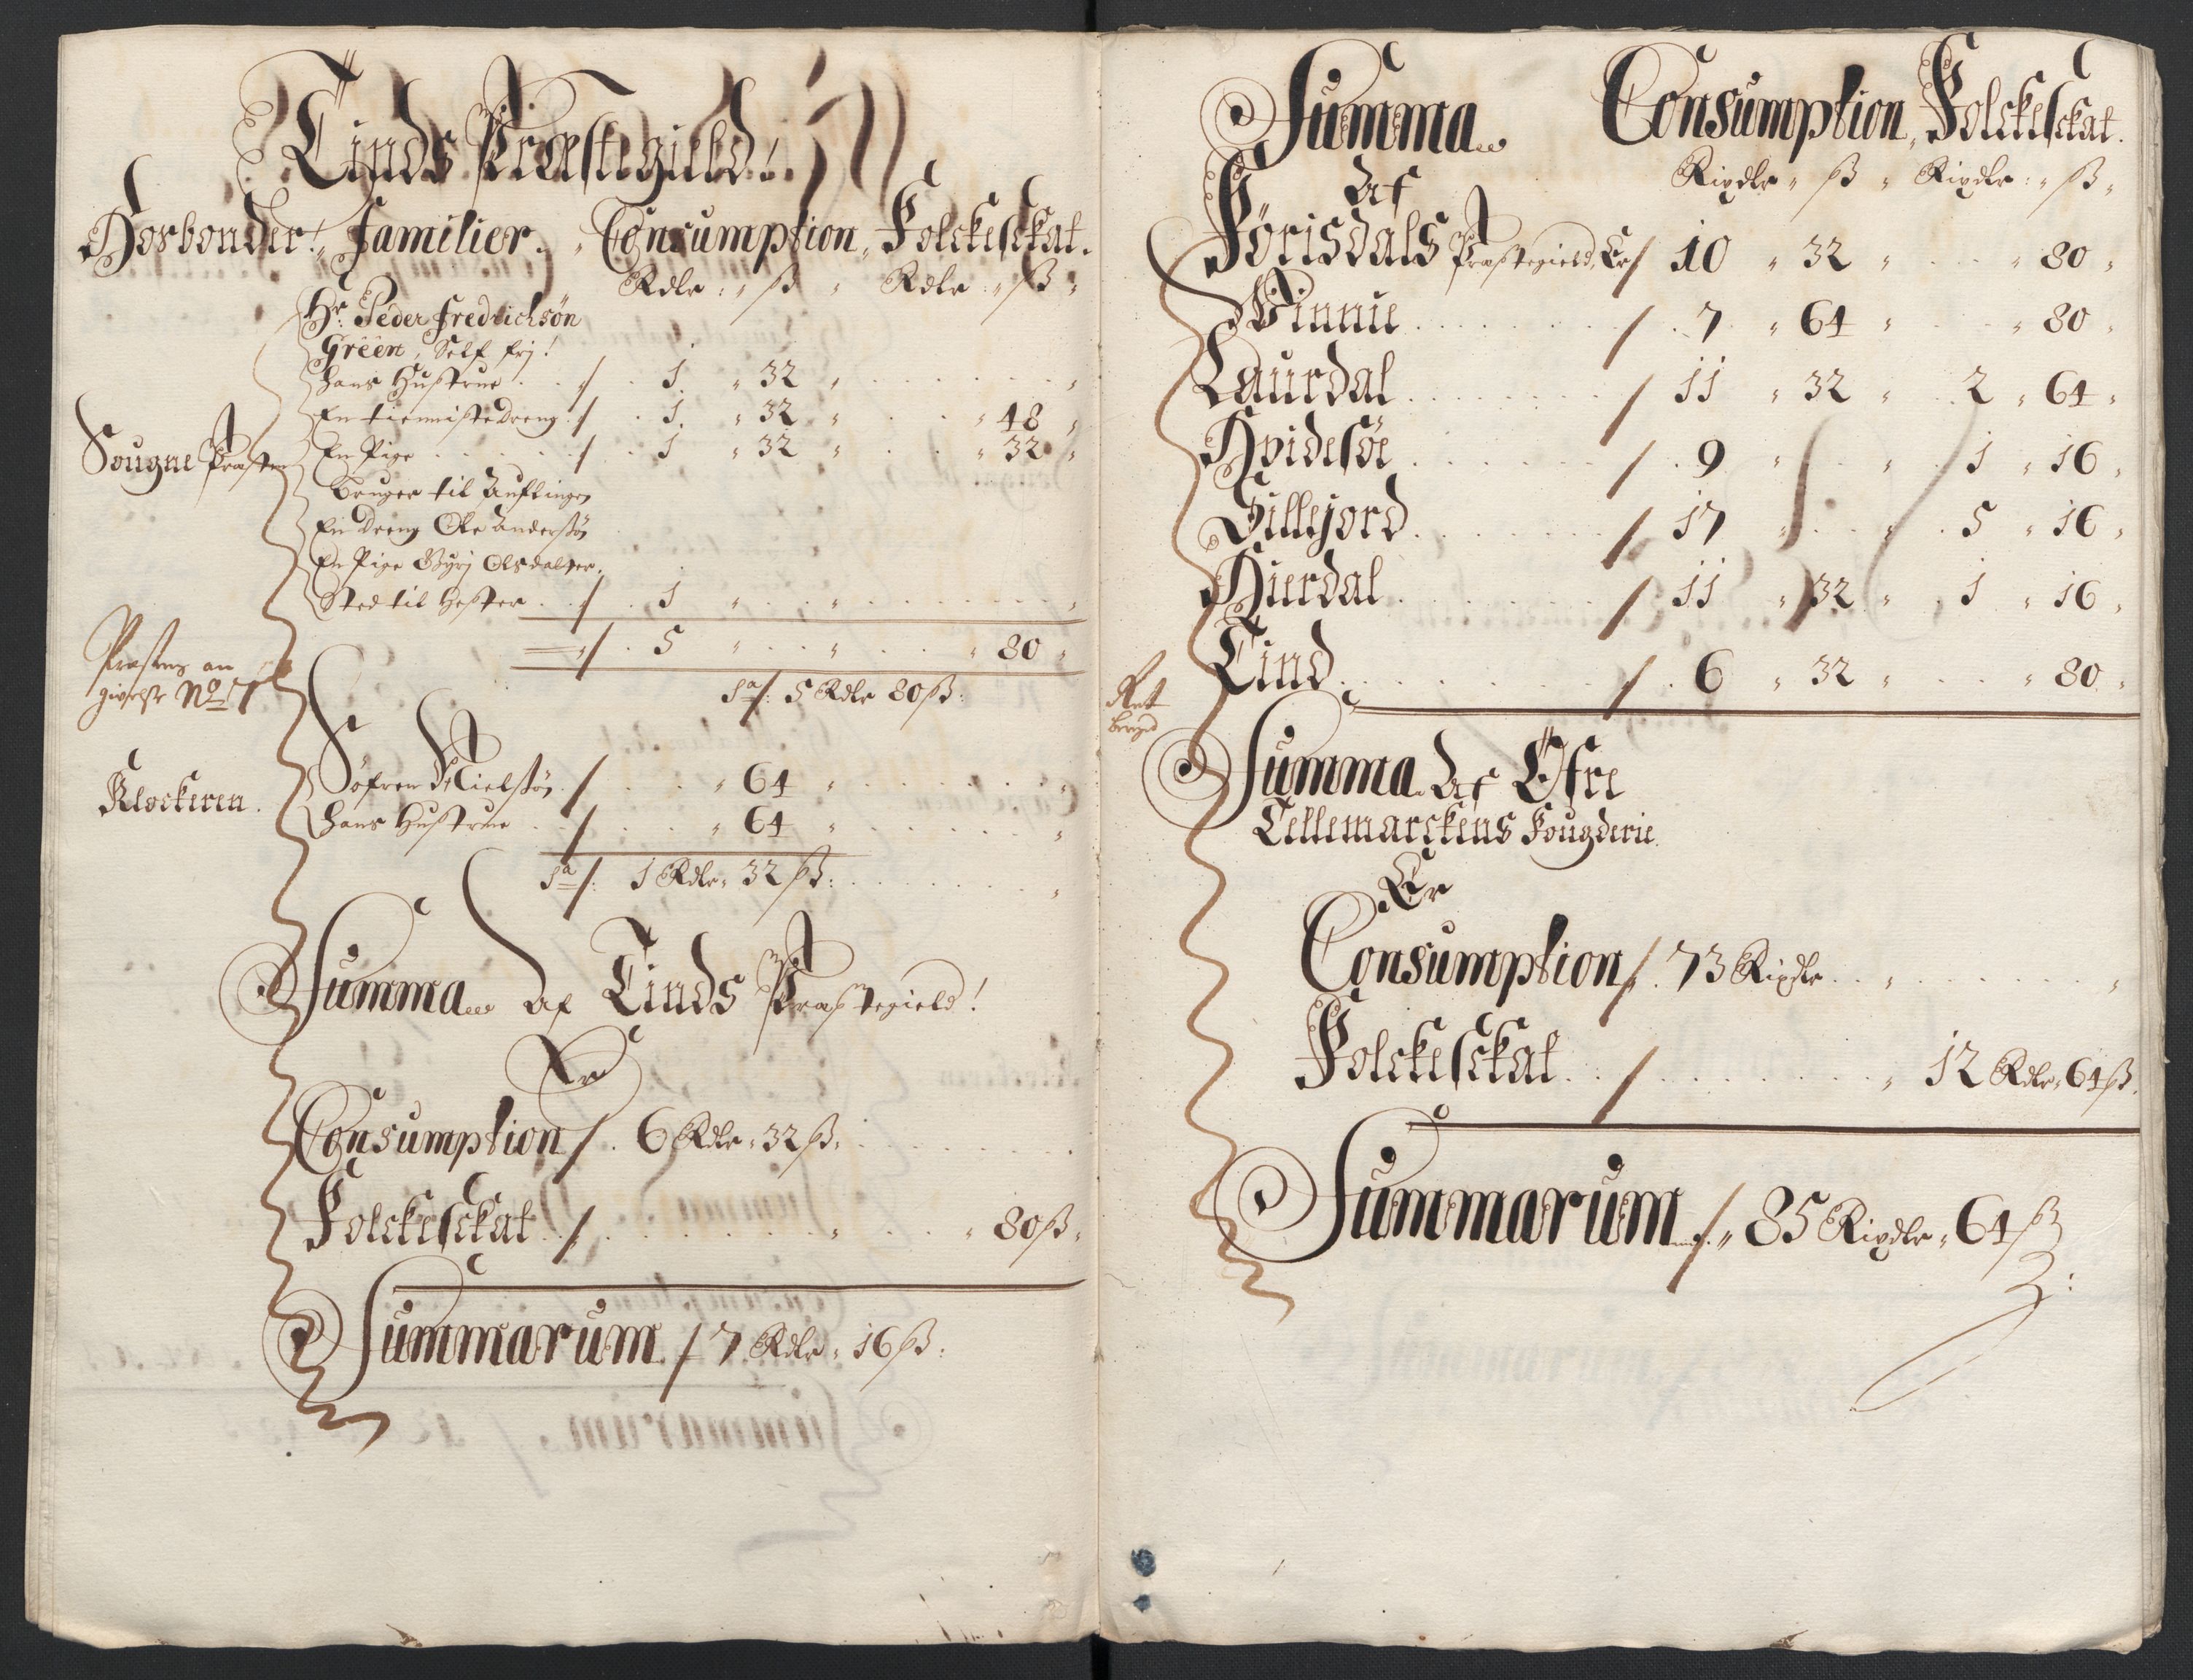 Tinds Præstegield!
Hosbonder! Familier. Consumption, Folckeskat.
Rdlr: ß Rdlr ß
Hr: Peder Fredrichsön
Gréen, Self frj!
Hans Hustrue / 1 32
En tienniste Dreng / 1 32 48
Sougne Præsten En Pige / 1 32 32
Bruger til Auflingen
En Dreng Ole Andersøn
En Pige Gyrj Olsdatter.
Sted til Hester / 1
/ 5 80
Præstens an
givelse No 71
Sa/: 5 Rdlr 80 ß:
Klockeren. Söfren Nielsøn / 64
Hans Hustrue / 64
Sa/: 1 Rdlr 32 ß:
Summa Af Tinds Præstegield!
Er
Consumption / 6 Rdlr 32 ß
Folckeskat / 80 ß
Summarum / 7 Rdlr 16 ß:
Summa Consumption, Folckeskat.
Af Rixdlr ß Rixdlr: ß
Förisdals Præstegield, Er / 10 32 80
Winnie / 7 64 80
Laurdal / 11 32 2 64
Hvidesöe / 9 1 16
Sillejord / 17 5 16
Hierdal / 11 32 1 16
Tind / 6 32 80
Ret
Summa Af Øfre
Tellemarckens Fougderie
Er
Consumption / 73 Rixdlr
Folckeskat / 12 Rdlr 64 ß
Summarum / 85 Rixdlr 64 ß